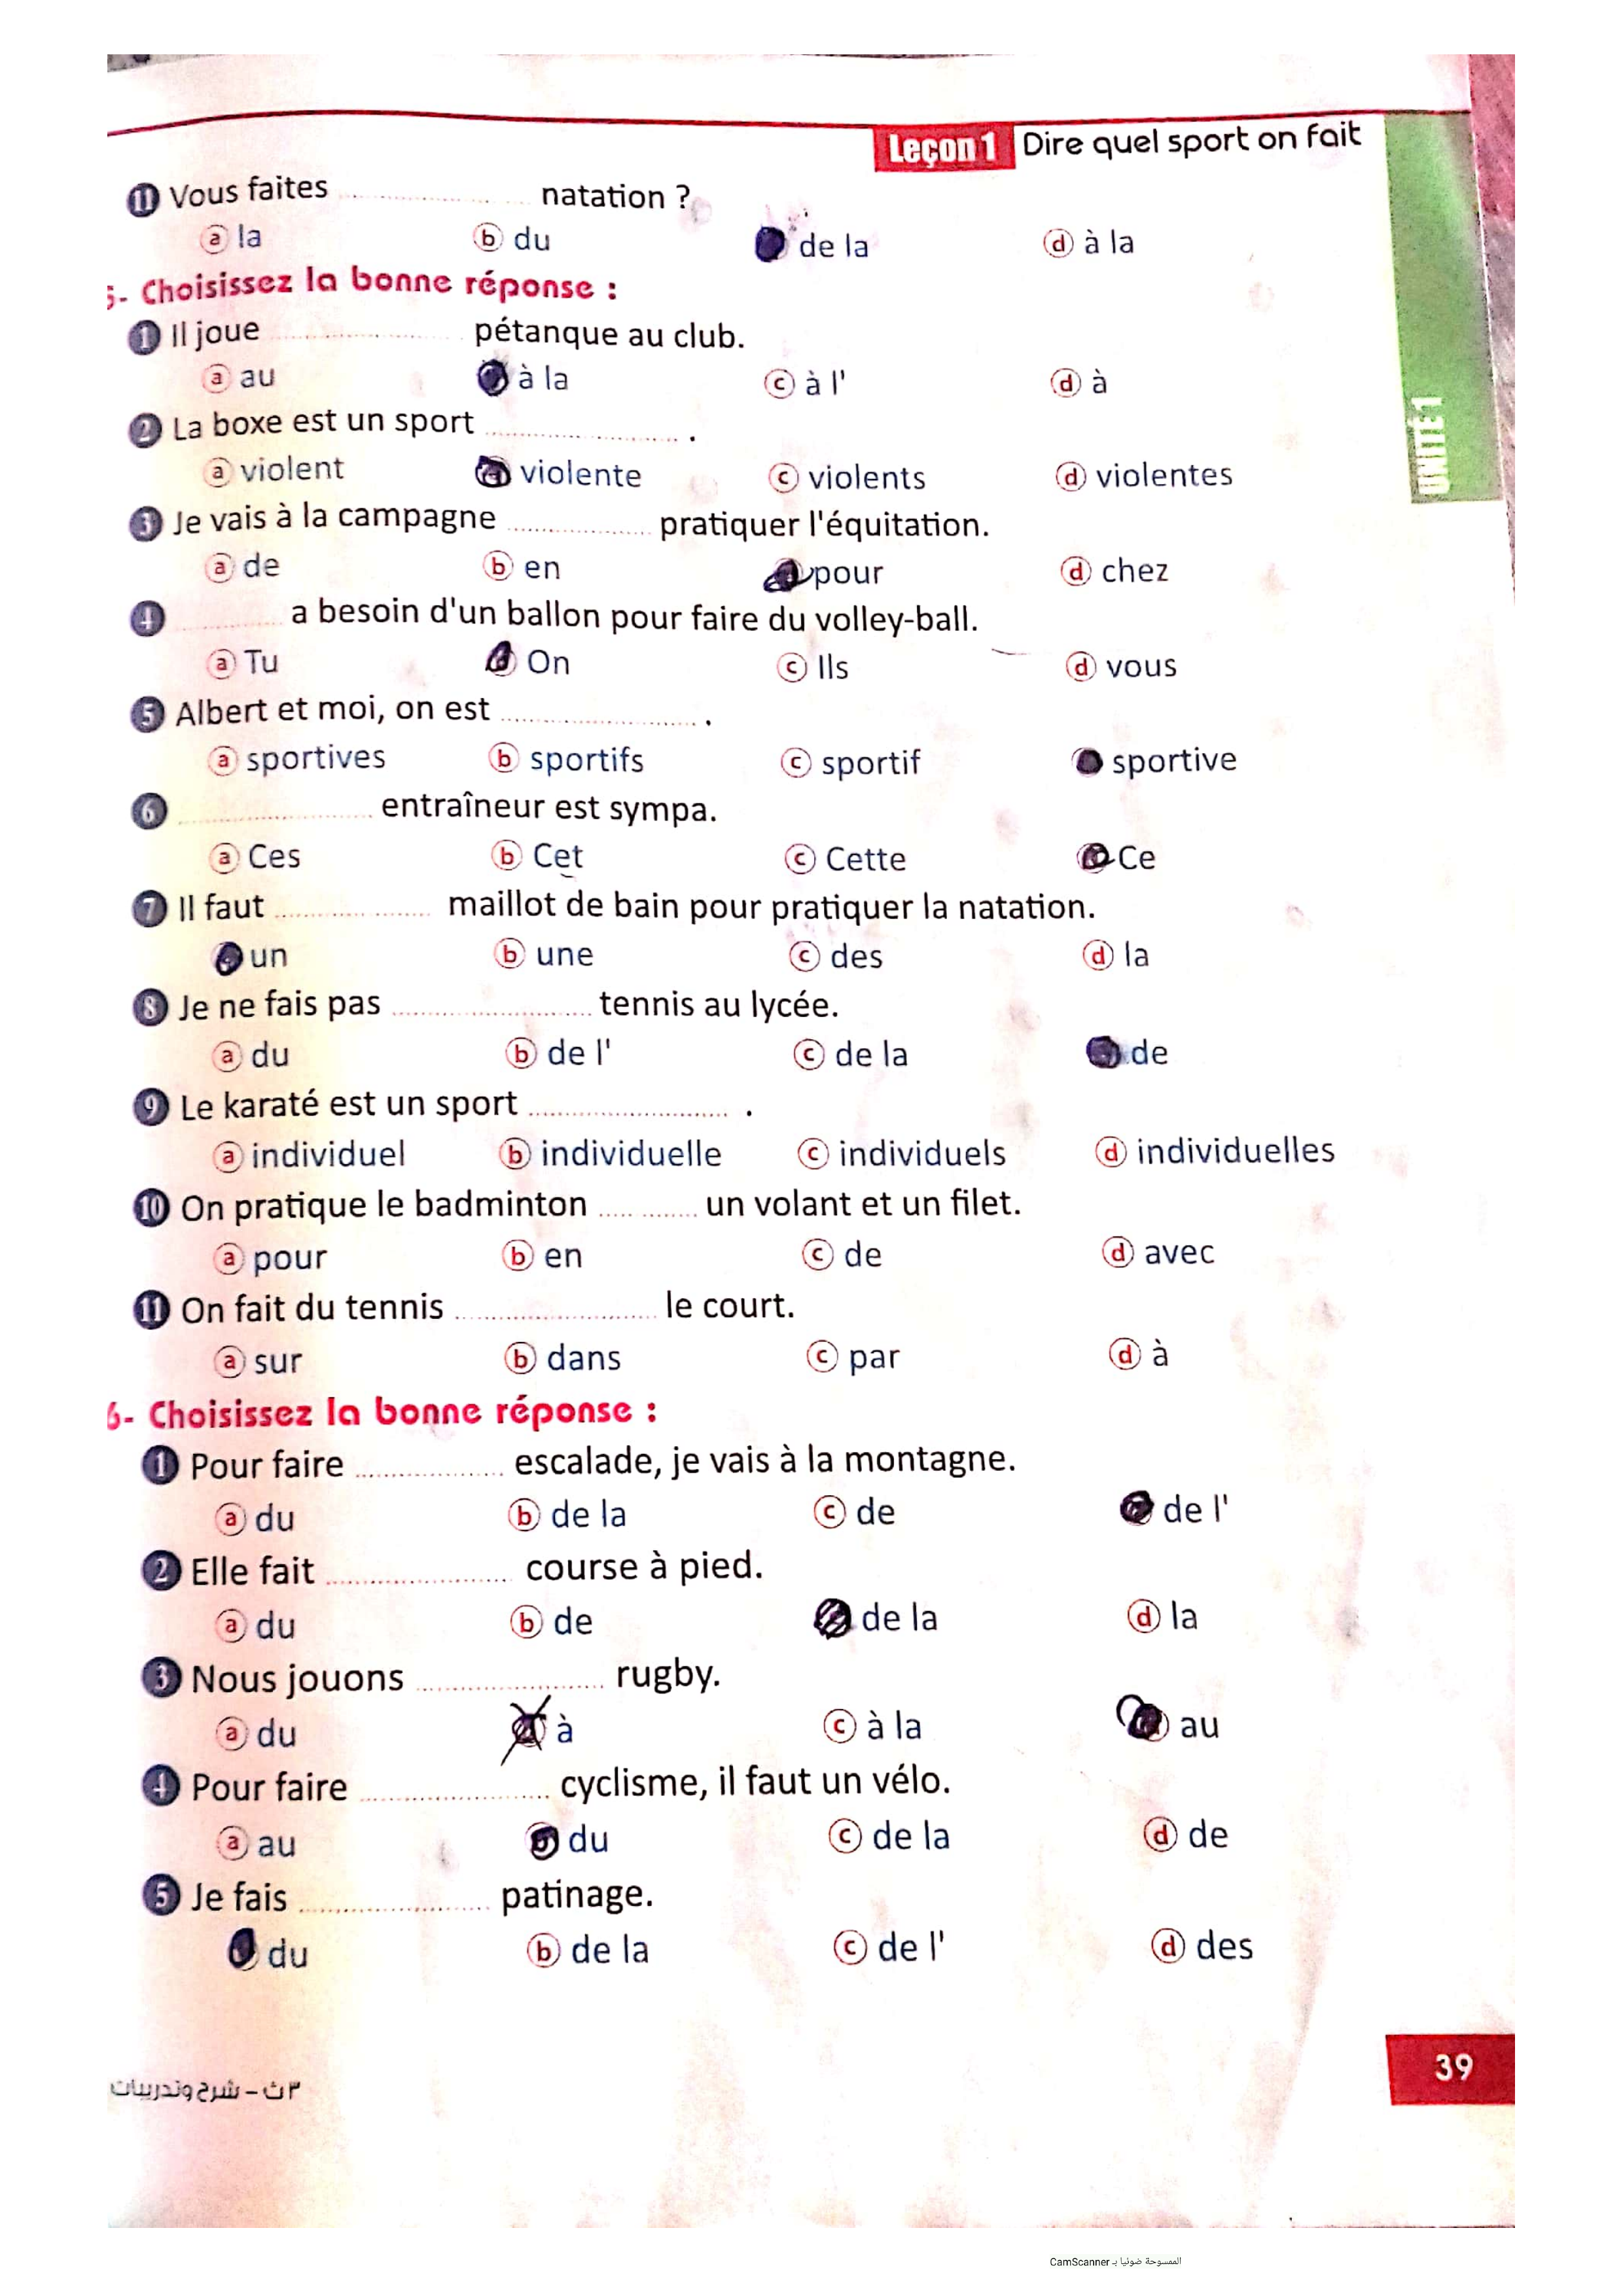 Leçon 1 Dire quel sport on fait
11 Vous faites .................... natation ?
a la b du de la d à la
5- Choisissez la bonne réponse :
1 Il joue .................... pétanque au club.
a au à la c à l' d à
2 La boxe est un sport .................... .
a violent violente c violents d violentes
3 Je vais à la campagne .................... pratiquer l'équitation.
a de b en pour d chez
4 .................... a besoin d'un ballon pour faire du volley-ball.
a Tu On c Ils d vous
5 Albert et moi, on est .................... .
a sportives b sportifs c sportif sportive
6 .................... entraîneur est sympa.
a Ces b Cet c Cette Ce
7 Il faut .................... maillot de bain pour pratiquer la natation.
un b une c des d la
8 Je ne fais pas .................... tennis au lycée.
a du b de l' c de la de
9 Le karaté est un sport .................... .
a individuel b individuelle c individuels d individuelles
10 On pratique le badminton .................... un volant et un filet.
a pour b en c de d avec
11 On fait du tennis .................... le court.
a sur b dans c par d à
6- Choisissez la bonne réponse :
1 Pour faire .................... escalade, je vais à la montagne.
a du b de la c de de l'
2 Elle fait .................... course à pied.
a du b de de la d la
3 Nous jouons .................... rugby.
a du à c à la au
4 Pour faire .................... cyclisme, il faut un vélo.
a au b du c de la d de
5 Je fais .................... patinage.
du b de la c de l' d des
UNITÉ 1
39
٣ث - شرح وتدريبات
الممسوحة ضوئيا بـ CamScanner